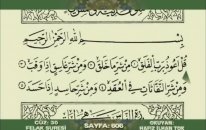 بِسْمِ اللّٰهِ الرَّحْمٰنِ الرَّحِيمِ
قُلْ اَعُوذُ بِرَبِّ الْفَلَقِ مِنْ شَرِّ مَا خَلَقَ وَمِنْ شَرِّ غَاسِقٍ اِذَا وَقَبَ
وَمِنْ شَرِّ النَّفَّاثَاتِ فِي الْعُقَدِ وَمِنْ شَرِّ حَاسِدٍ اِذَا حَسَدَ
CÜZ: 30
FELAK SURESİ
SAYFA: 606
OKUYAN:
HAFIZ İLHAN TOK